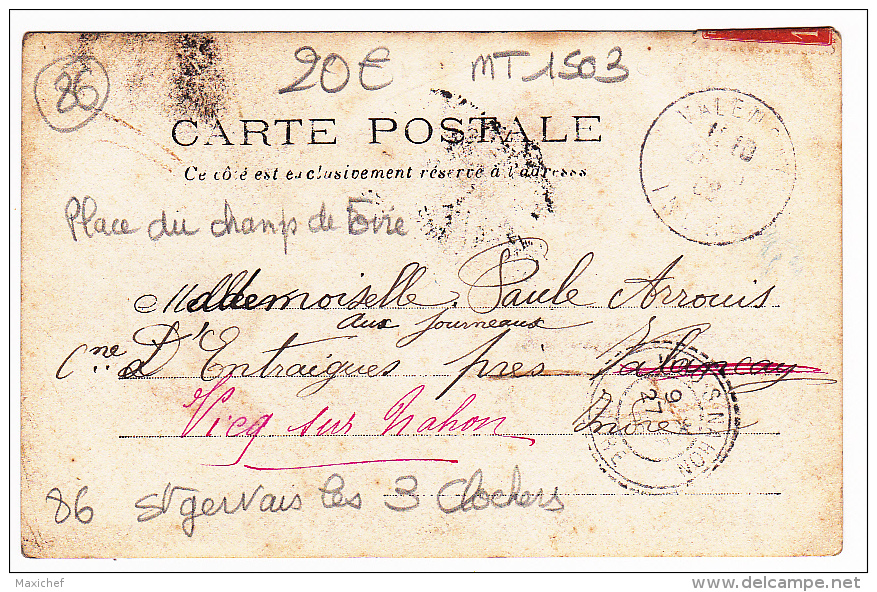 20€ MT 1503
86
CARTE POSTALE
Ce côté est exclusivement réservé à l'adresse
Place du champ de Foire
Mademoiselle Paule Arrouis
aux Journeaux
Cne d'Entraigues près Valançay
Vicq sur Nahon Indre
86 St gervais les 3 Clochers
VALENÇAY
S-NAHON
9
27
Maxichef
delcampe.net